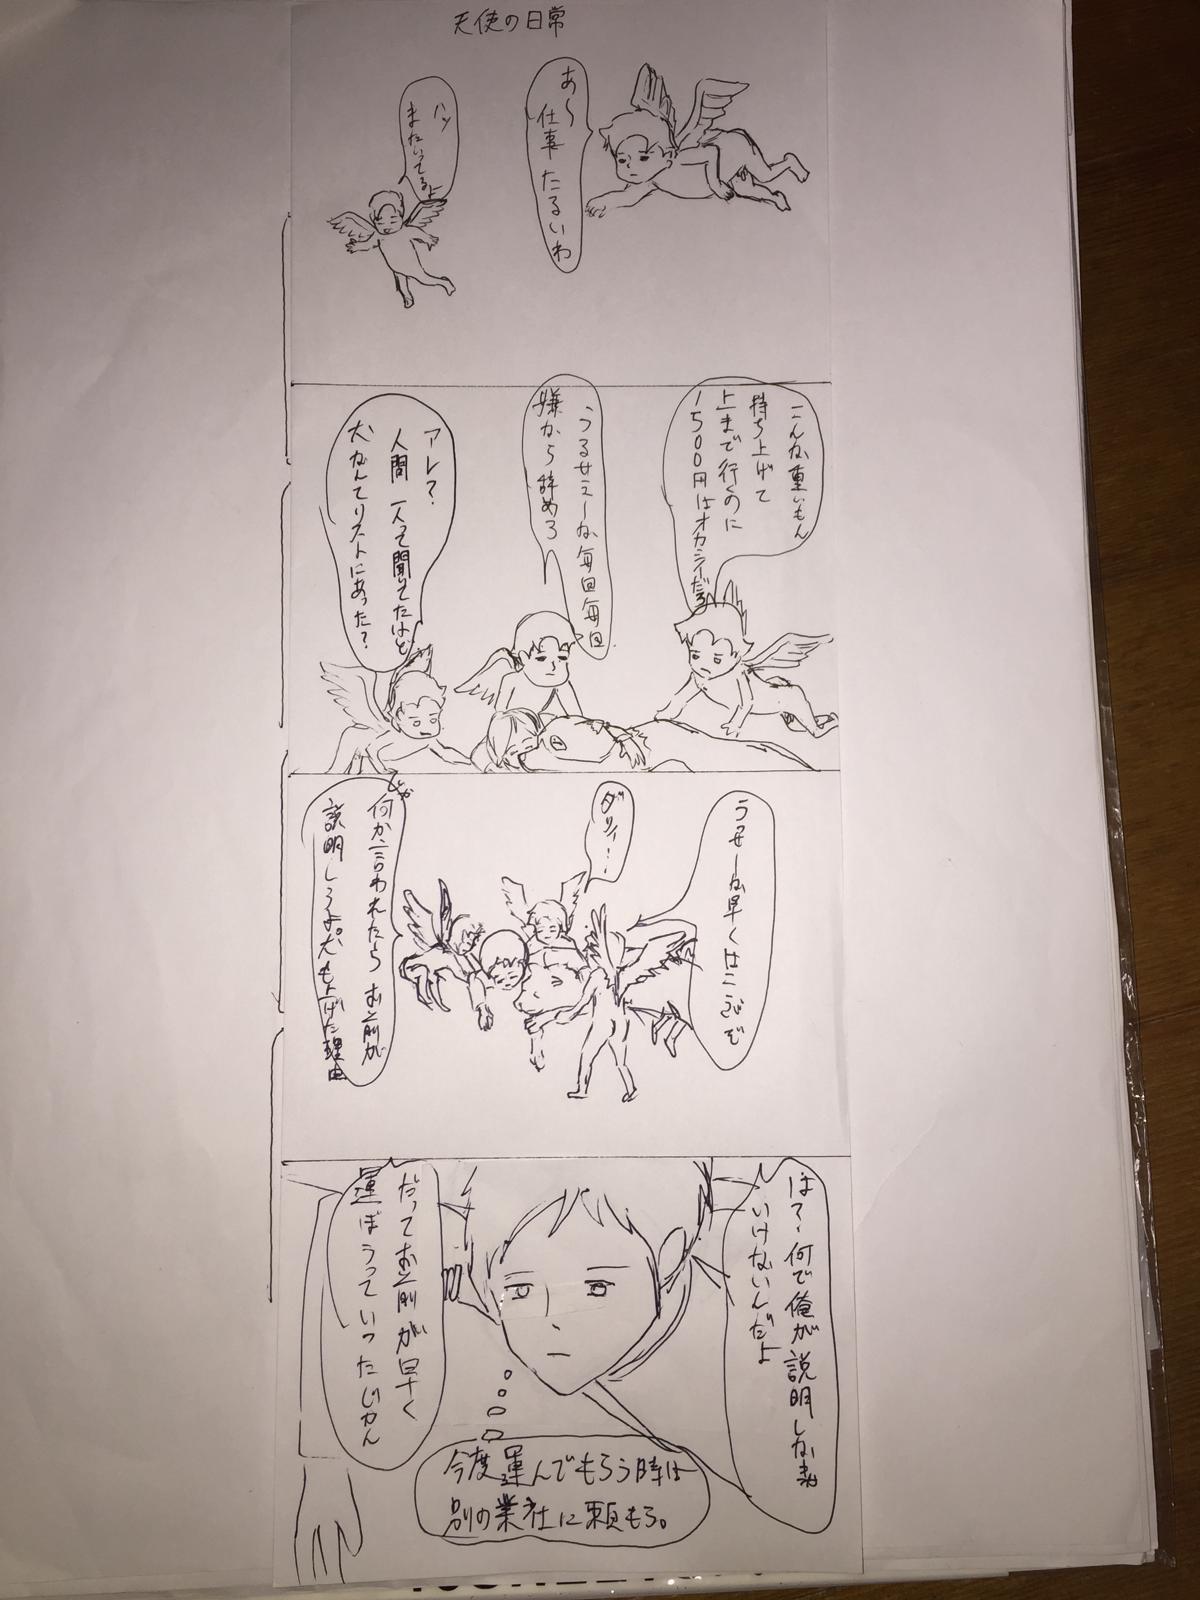 天使の日常
あ〜
仕事たるいわ
ハッ
まだいてるよ
こんな重いもん
持ち上げて
上まで行くのに
1500円はオカシイだろ
うるサエーな毎回毎回
嫌なら辞めろ
アレ？
人間一人って聞いてたけど
犬なんてリストにあった？
うっせーな早くはこぶぞ
ダリィ…
何か言われたらお前が
説明しろよ。犬も上げた理由
は？何で俺が説明しなきゃ
いけないんだよ
だってお前が早く
運ぼうっていったじゃん
今度運んでもらう時は
別の業社に頼もう。